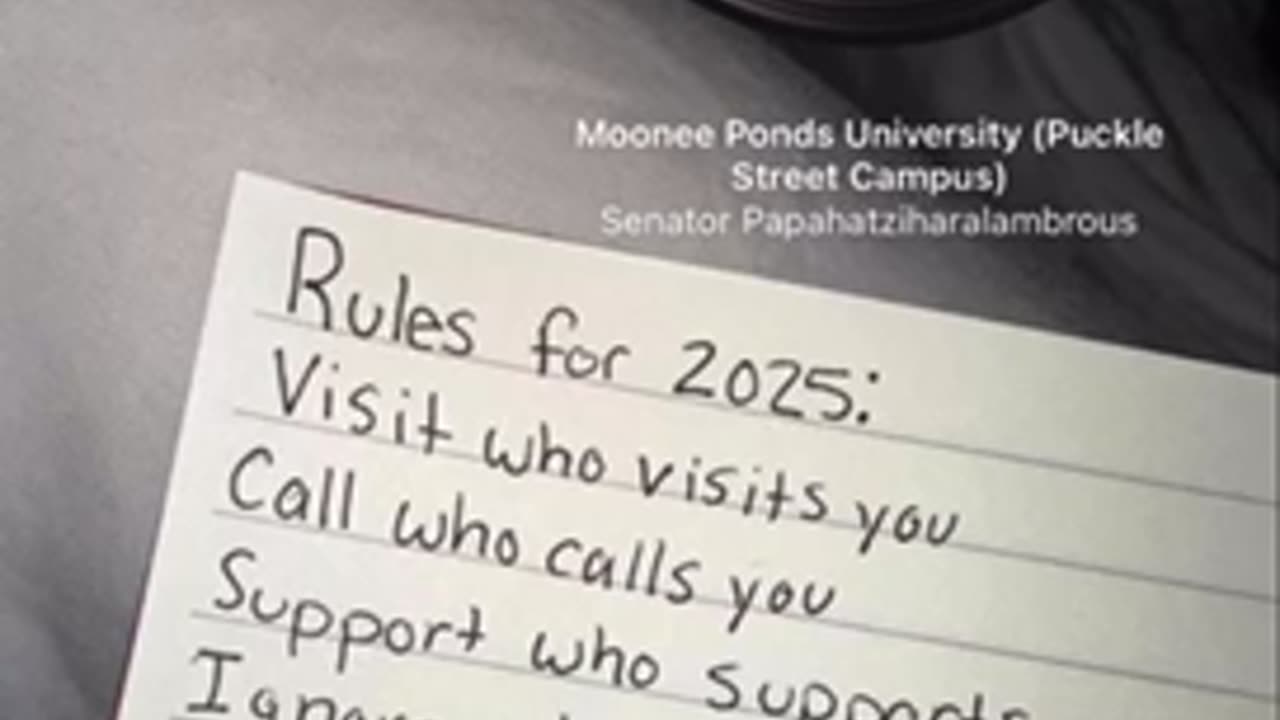 Moonee Ponds University (Puckle
Street Campus)
Senator Papahatziharalambrous
Rules for 2025:
Visit who visits you
Call who calls you
Support who supports